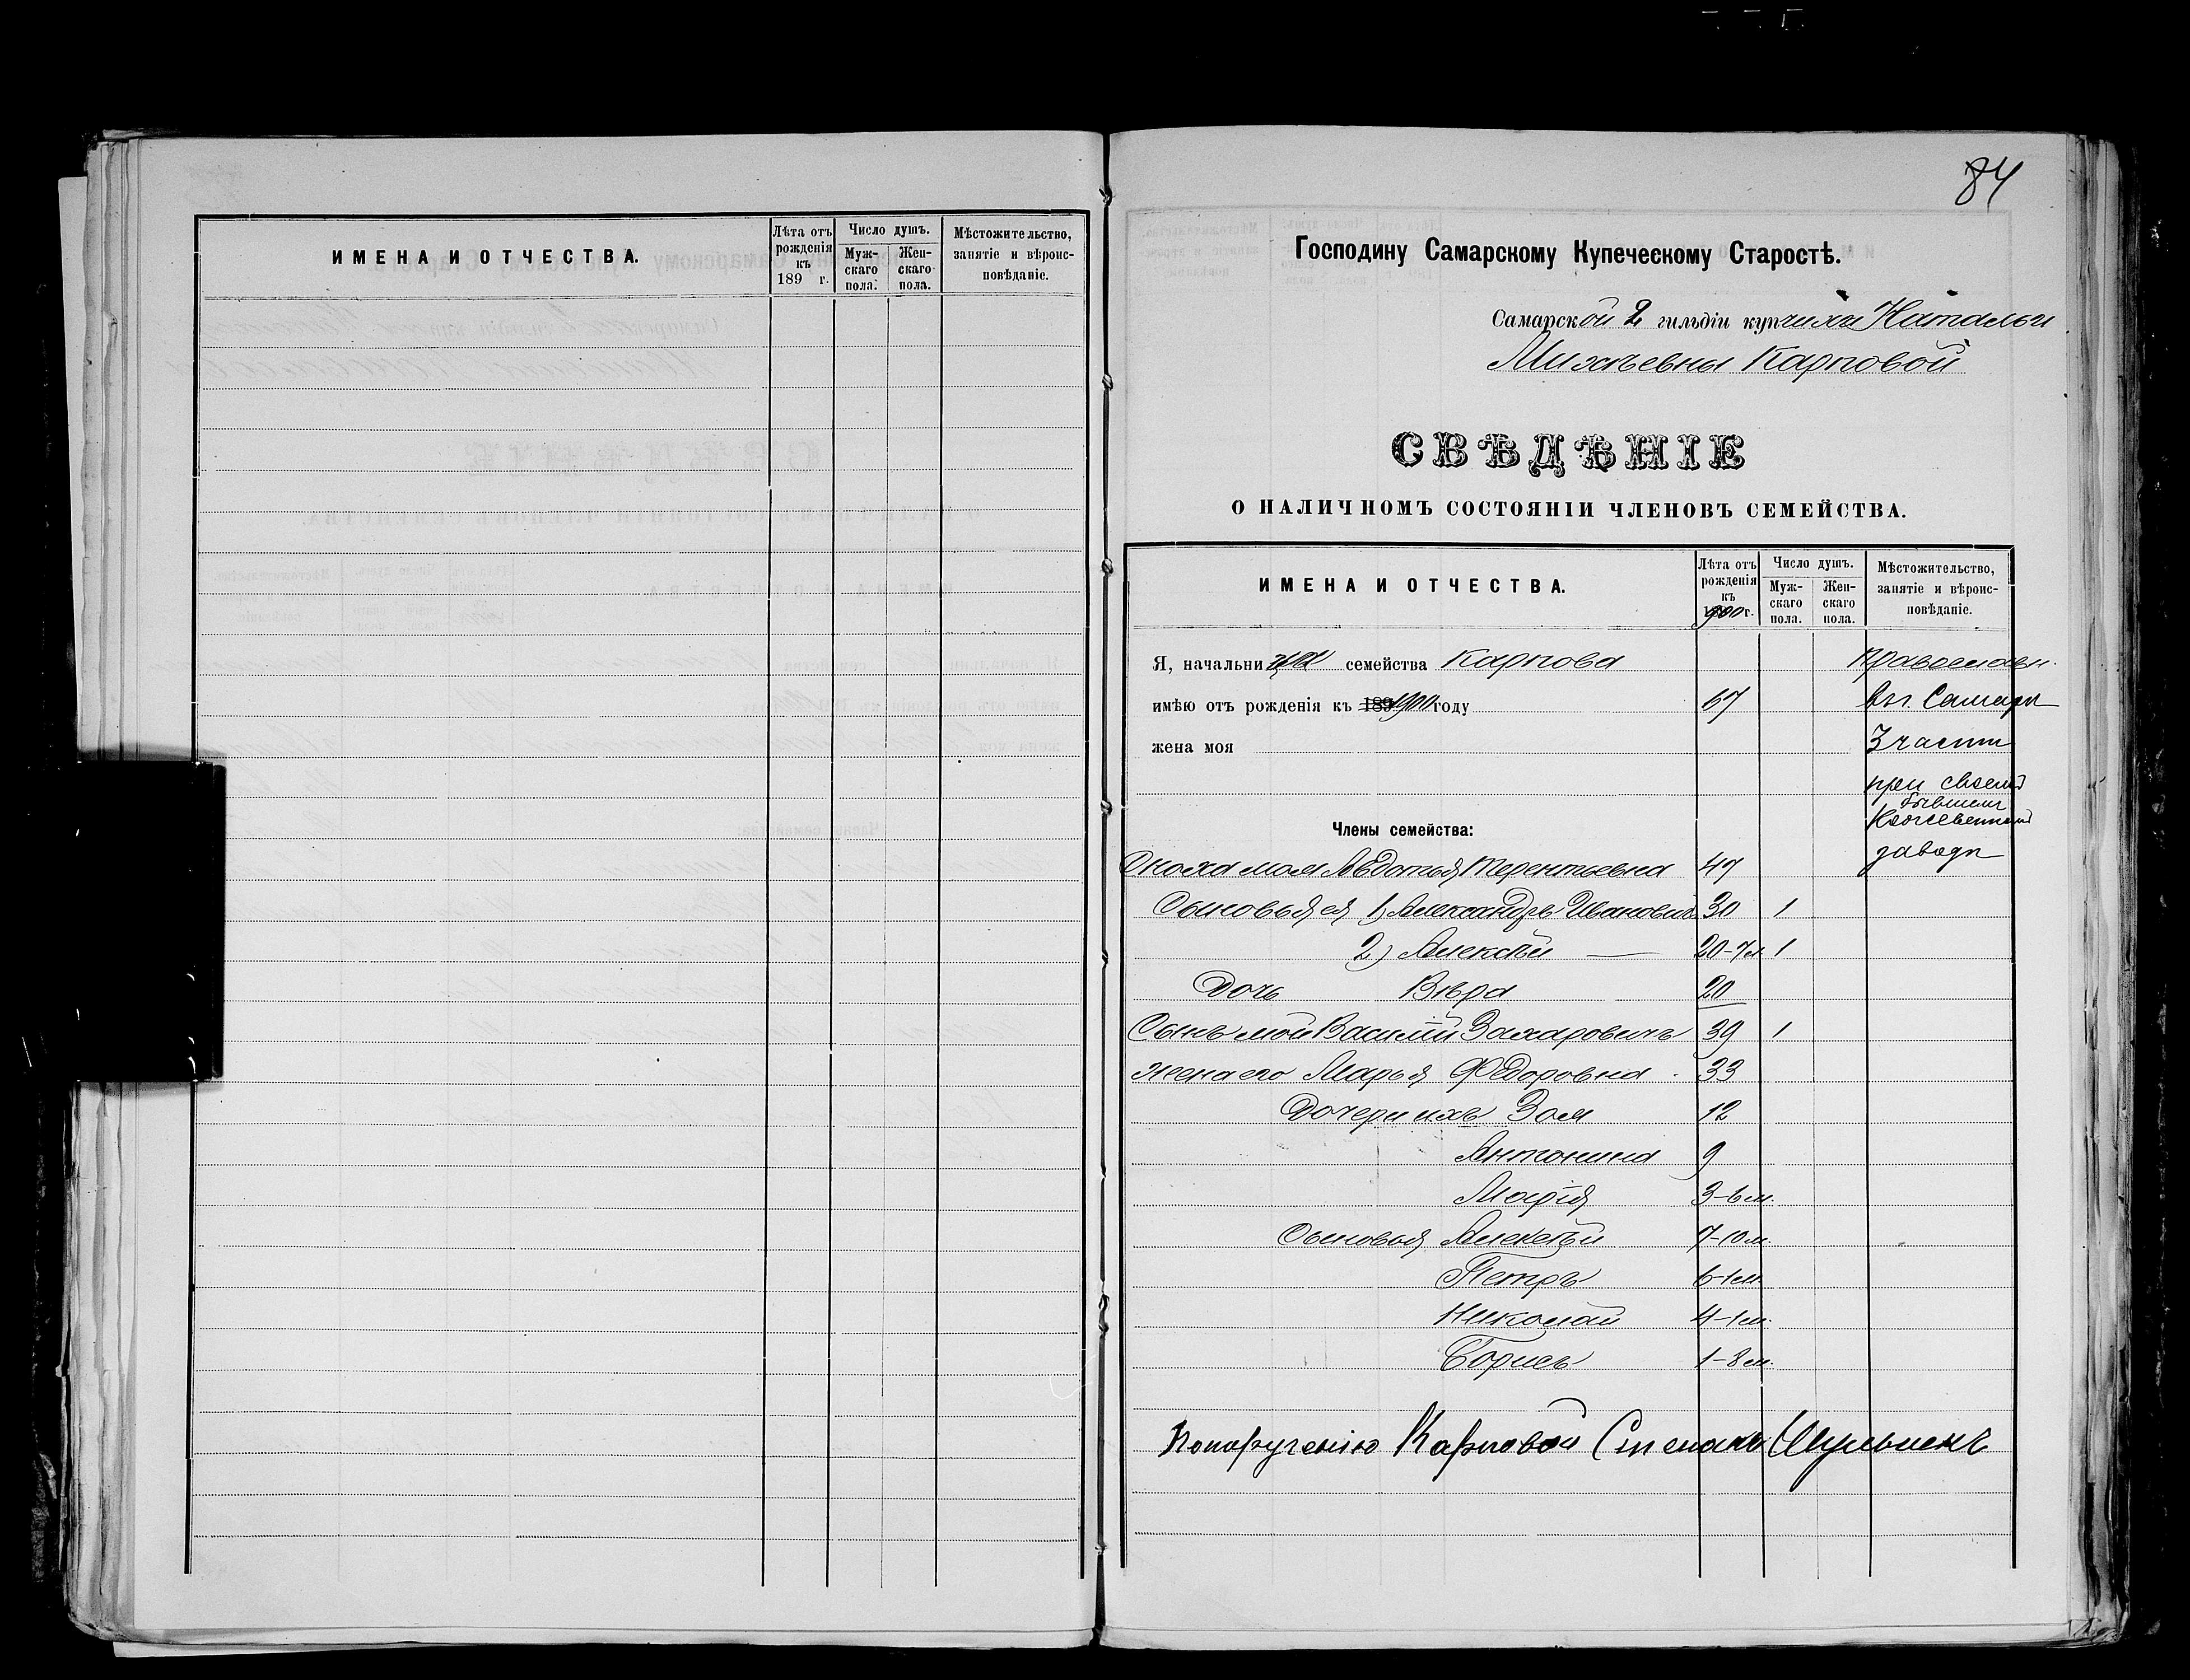 ИМЕНА И ОТЧЕСТВА.
Лѣта отъ рожденія къ 189 г.
Число душъ.
Мужскаго пола.
Женскаго пола.
Мѣстожительство, занятіе и вѣроисповѣданіе.
84
Господину Самарскому Купеческому Старостѣ.
Самарской 2 гильдіи купчихи Натальи
Михѣевны Карповой
СВѢДѢНІЕ
О НАЛИЧНОМЪ СОСТОЯНІИ ЧЛЕНОВЪ СЕМЕЙСТВА.
ИМЕНА И ОТЧЕСТВА.
Лѣта отъ рожденія къ 1900 г.
Число душъ.
Мужскаго пола.
Женскаго пола.
Мѣстожительство, занятіе и вѣроисповѣданіе.
Я, начальница семейства Карпова Православн.
имѣю отъ рожденія къ 189 1900 году 67 въ г. Самарѣ
жена моя 3 части
при своемъ
бывшемъ
Кожевенномъ
Члены семейства:
заводѣ
Сноха моя Авдотья Терентьевна 47
Сыновья ея 1) Александръ Ивановичъ 30 1
2) Алексѣй — 20-7м. 1
Дочь Вѣра 20
Сынъ мой Василій Захаровичъ 39 1
жена его Марья Федоровна 33
Дочери ихъ Зоя 12
Антонина 9
Марія 3-6м.
Сыновья Алексѣй 7-10м.
Петръ 6-1м.
Николай 4-1м.
Борисъ 1-8м.
По порученію Карповой Степанъ